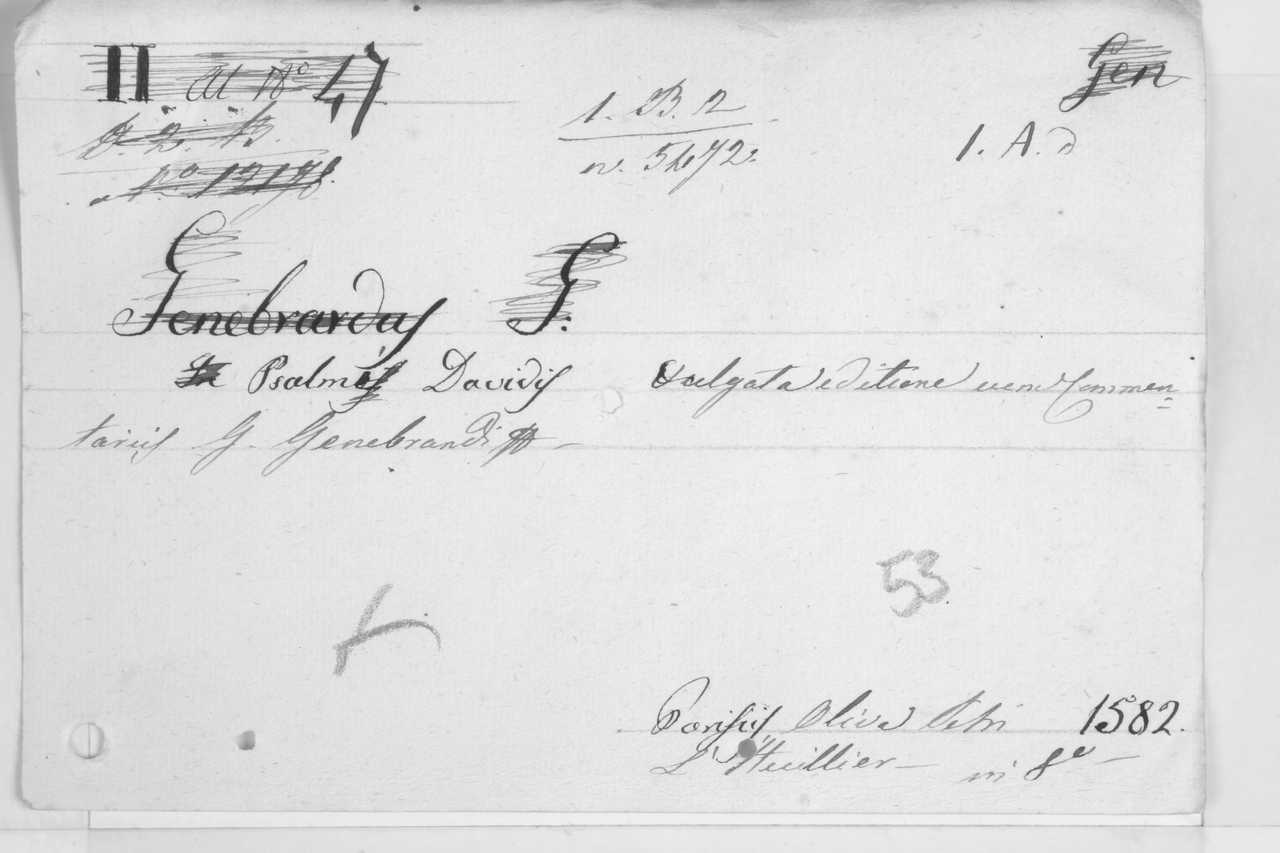 II 47 Gen
1. B. 2 1. A. d
n. 5472.
Genebrardus G.
Psalmis Davidis Vulgata editione cum Commen=
tariis G. Genebrardi
53
Parisiis, Oliva Petri 1582.
L'Huillier — in 8º —